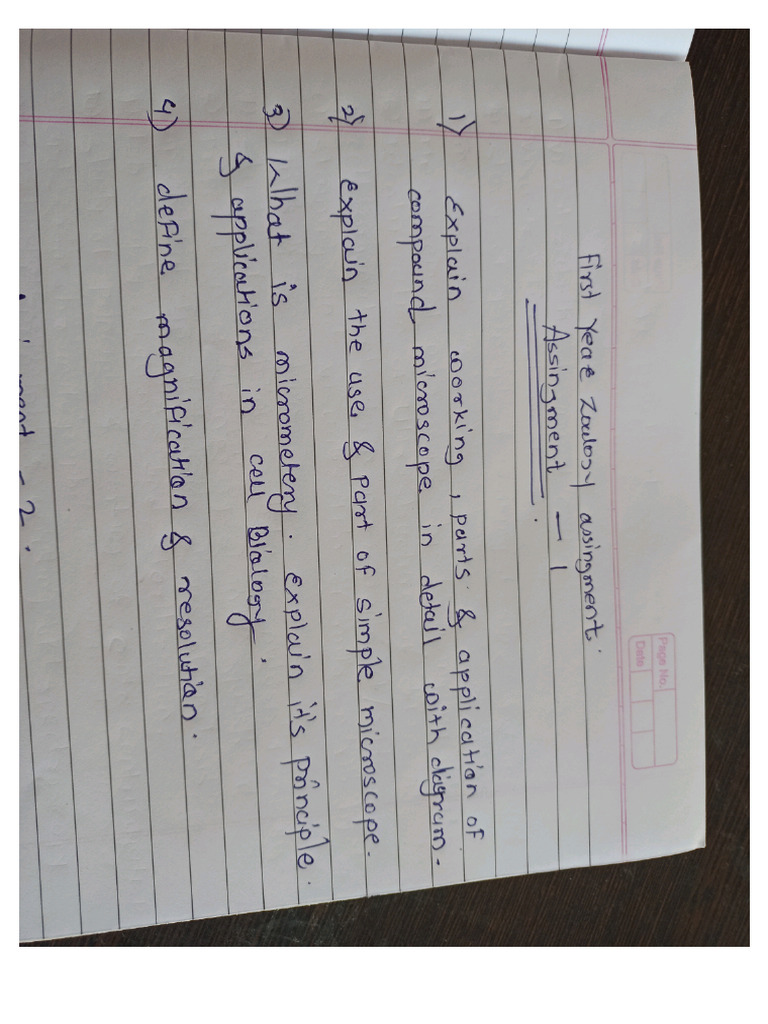 Page No.
Date
First Year Zoology assingment.
Assingment - 1
1) Explain working, parts & application of
compound microscope in detail with diagram.
2) explain the use & part of simple microscope.
3) What is micrometery. explain it's principle.
& applications in cell Biology.
4) define magnification & resolution.
- 2.